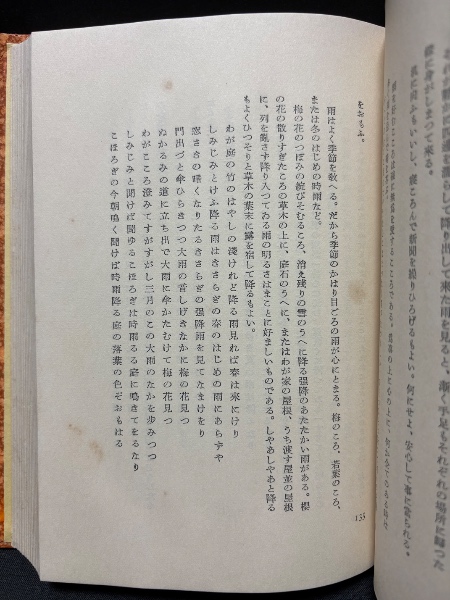 それが軒から道を濡らして降り出して来た雨を見ると、漸く手足もそれぞれの場所に歸つた
樣に身がしまつて來る。
をおもふ。
雨はよく季節を敎へる。だから季節のかはり目ごろの雨が心にとまる。梅のころ、若葉のころ、
または冬のはじめの時雨など。
梅の花のつぼみの綻びそむるころ、消え殘りの雪のうへに降る强降のあたたかい雨がある。櫻
の花の散りすぎたころの草木の上に、庭石のうへに、またはわが家の屋根、うち渡す屋並の屋根
に、列を亂さず降り入つてゐる雨の明るさはまことに好ましいものである。しやあしやあと降る
もよくひつそりと草木の葉末に露を宿して降るもよい。
わが庭の竹のはやしの淺けれど降る雨見れば春は來にけり
しみじみとけふ降る雨はきさらぎの春のはじめの雨にあらずや
窓さきの暗くなりたるきさらぎの强降雨を見てなまけをり
門出づと傘ひらきつつ大雨の音しげきなかに梅の花見つ
ぬかるみの道に立ち出で大雨に傘かたむけて梅の花見つ
わがこころ澄みてすがすがし三月のこの大雨のなかを步みつつ
しみじみと聞けば聞ゆるこほろぎは時雨るる庭に鳴きてをるなり
こほろぎの今朝鳴く聞けば時雨降る庭の落葉の色ぞおもはる
133